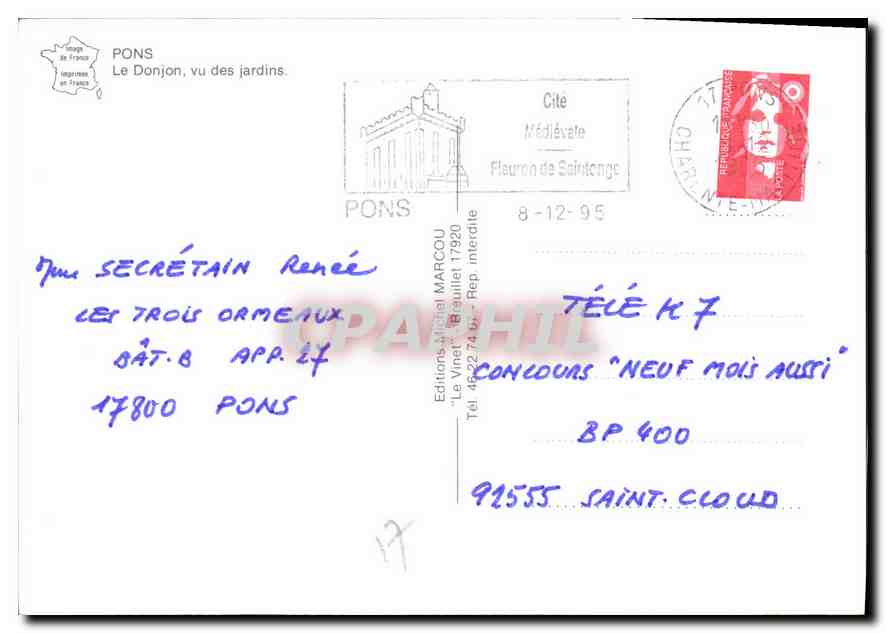 Image
de France
Imprimée
en France
PONS
Le Donjon, vu des jardins.
Cité
Médiévale
Fleuron de Saintonge
PONS
8-12-95
17 PONS
RÉPUBLIQUE FRANÇAISE
LA POSTE
Mme SECRÉTAIN Renée
LES TROIS ORMEAUX
BÂT. B APP. 27
17800 PONS
Editions Michel MARCOU
"Le Vinet" - Breuillet 17920
Tél. 46.22.74.07 - Rep. interdite
CPAPHIL
TÉLÉ K7
CONCOURS "NEUF MOIS AUSSI"
BP 400
92555 SAINT-CLOUD
17